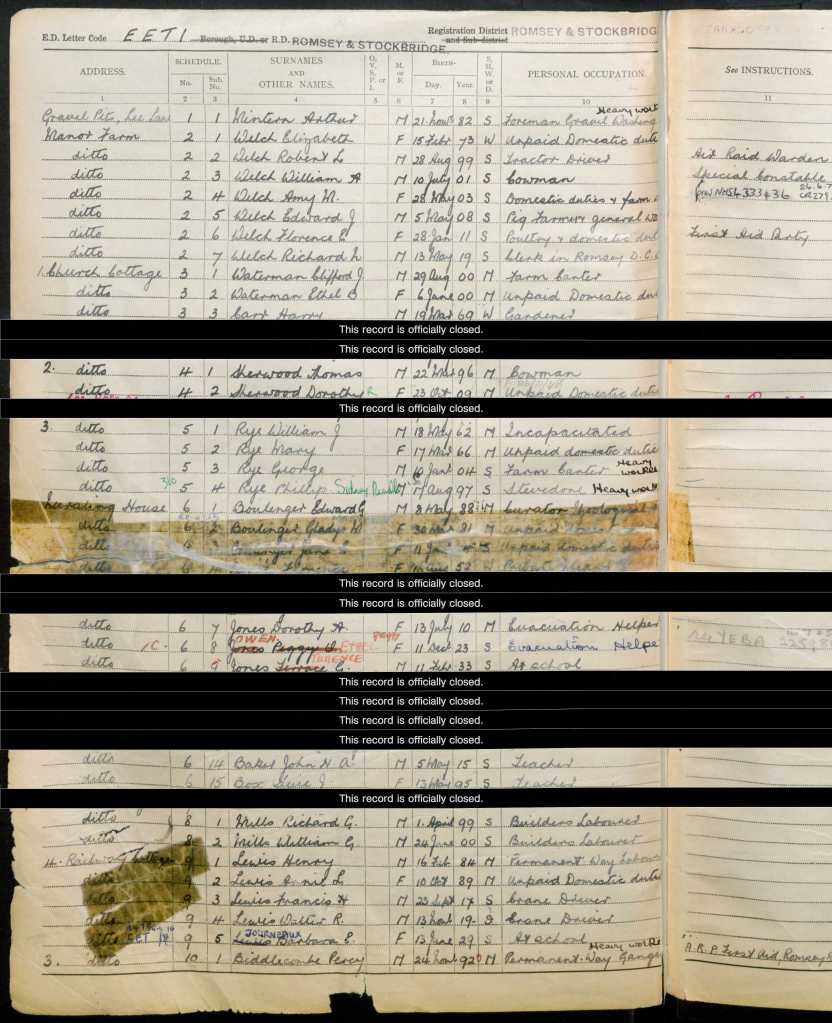 E.D. Letter Code EETI Borough, U.D. or R.D. ROMSEY & STOCKBRIDGE Registration District and Sub-district ROMSEY & STOCKBRIDG
ADDRESS. SCHEDULE. No. Sub. No. SURNAMES AND OTHER NAMES. O, V, S, P, or I. M. or F. BIRTH- Day. Year. S, M, W, or D. PERSONAL OCCUPATION. See INSTRUCTIONS.
1 2 3 4 5 6 7 8 9 10 11
Heavy work
Gravel Pits, Lee Lane 1 1 Mintern Arthur M 21 Nov 82 S Foreman Gravel Washing
Manor Farm 2 1 Welch Elizabeth F 15 Febr 73 W Unpaid Domestic duti
ditto 2 2 Welch Robert L M 28 Aug 99 S Tractor Driver Air Raid Warden
ditto 2 3 Welch William A M 10 July 01 S Cowman Special Constable
ditto 2 4 Welch Amy M. F 28 May 03 S Domestic duties & farm
ditto 2 5 Welch Edward J M 5 May 08 S Pig Farmer & general wo
ditto 2 6 Welch Florence E F 28 Jan 11 S Poultry & domestic duti First Aid Party
ditto 2 7 Welch Richard L M 13 May 19 S Clerk in Romsey D.C.
1. Church Cottage 3 1 Waterman Clifford J M 29 Aug 00 M Farm Carter
ditto 3 2 Waterman Ethel B F 6 June 00 M Unpaid Domestic dut
ditto 3 3 Carr Harry M 19 Mar 69 W Gardener
This record is officially closed.
This record is officially closed.
2. ditto 4 1 Sherwood Thomas M 22 Mar 96 M Cowman
ditto 4 2 Sherwood Dorothy R F 23 Oct 09 M Unpaid Domestic dutie
This record is officially closed.
3. ditto 5 1 Rye William J M 18 May 62 M Incapacitated
ditto 5 2 Rye Mary F 17 Mar 66 M Unpaid domestic dutie
ditto 5 3 Rye George M 10 Jant 04 S Farm Carter Heavy worker
ditto 5 4 Rye Phillip Sidney M 17 Aug 97 S Stevedore Heavy work
House 6 1 Boulenger Edward G M 8 May 88 M Curator
ditto 6 2 Boulenger Gladys M F 30 81 M Unpaid
ditto 6 3 F 11 Jan S Unpaid domestic duties
ditto F 52 W Private
This record is officially closed.
This record is officially closed.
ditto 6 7 Jones Dorothy A. F 13 July 10 M Evacuation Helper
OWEN. Peggy
ditto 1C. 6 8 Jones Peggy O. ETHEL F 11 Dec 23 S Evacuation Helpe
TERENCE
ditto 6 9 Jones Terrace C. M 11 Feb 33 S At school
This record is officially closed.
This record is officially closed.
This record is officially closed.
This record is officially closed.
ditto 6 14 Baker John H A. M 5 May 15 S Teacher
ditto 6 15 Box J. F 13 May 95 S Teacher
This record is officially closed.
ditto 8 1 Mills Richard G. M 1. April 99 S Builders Labourer
ditto 8 2 Mills William G M 24 June 00 S Builders Labourer
4. Railway Cottages 9 1 Lewis Henry M 16 Feb 84 M Permanent Way Labour
ditto 9 2 Lewis Annie L F 10 Oct 89 M Unpaid Domestic dutie
ditto 9 3 Lewis Francis H M 23 Sept 17 S Crane Driver
ditto 9 4 Lewis Walter R. M 13 Nov 19 S Crane Driver
JOURNEAUX
ditto EET 9 5 Lewis Barbara E. F 13 June 29 S At school
Heavy worke
3. ditto 10 1 Biddlecombe Percy M 24 Nov 92 M Permanent-Way Gange A.R.P First Aid, Romsey